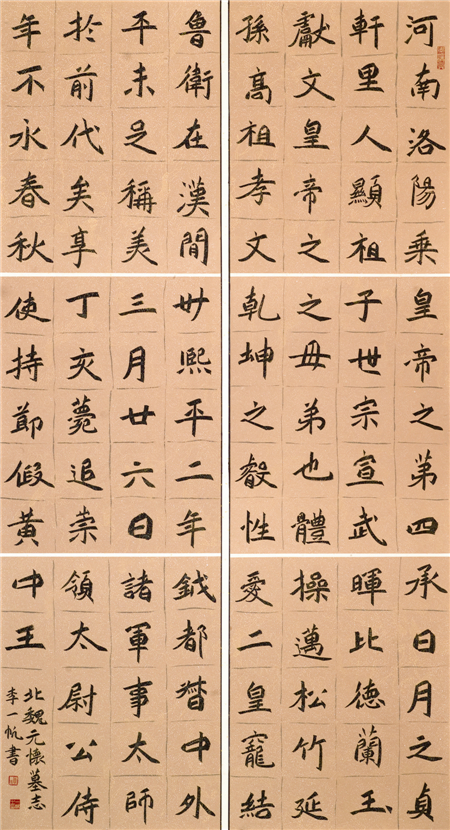 河南洛陽乘
軒里人顯祖
獻文皇帝之
孫高祖孝文
皇帝之第四
子世宗宣武
之母弟也體
乾坤之叡性
承日月之貞
暉比德蘭玉
操邁松竹延
愛二皇寵結
魯衛在漢間
平未足稱美
於前代矣享
年不永春秋
卅熙平二年
三月廿六日
丁亥薨追崇
使持節假黃
鉞都督中外
諸軍事太師
領太尉公侍
中王
北魏元懷墓志
李一帆書